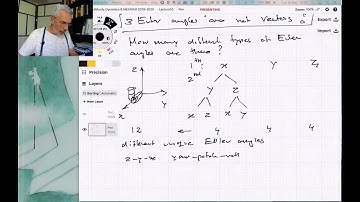 PRESENTING
{3 Euler angles are not vectors}
Export
Import
How many different types of Euler
angles are there?
1st X Y Z
2nd
Y Z
Z X X Y
12 ← 4 4 4
different unique Euler angles
z-y-x yaw-pitch-roll
Precision
Layers
Sorting: Automatic
+ New Layer
Z
Y
X